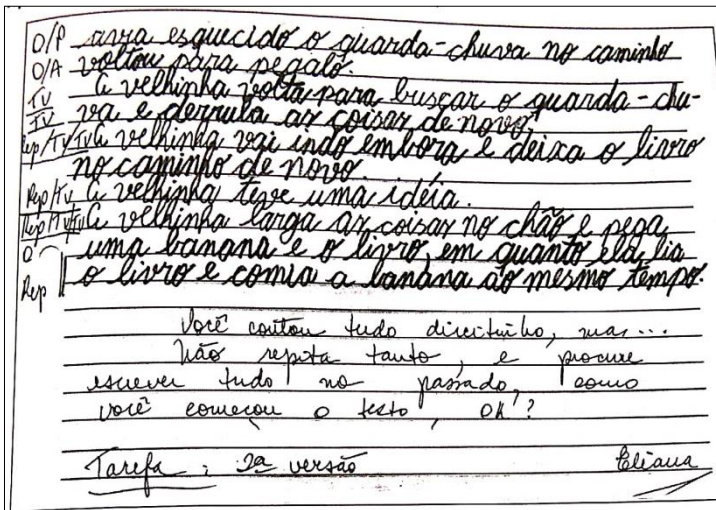 O/P avia esquecido o guarda-chuva no caminho
O/A voltou para pegalo.
TV A velhinha volta para buscar o guarda-chu-
TV va e derruba as coisas de novo,
Rep/TV/TV A velhinha vai indo embora e deixa o livro
no caminho de novo.
Rep/TV A velhinha teve uma idéia.
Rep/TV/TV A velhinha larga as coisas no chão e pega
O uma banana e o livro, em quanto ela lia
Rep o livro e comia a banana ao mesmo tempo.
Você contou tudo direitinho, mas...
Não repita tanto, e procure
escrever tudo no passado, como
você começou o texto, OK?
Tarefa: 2a versão Eliana